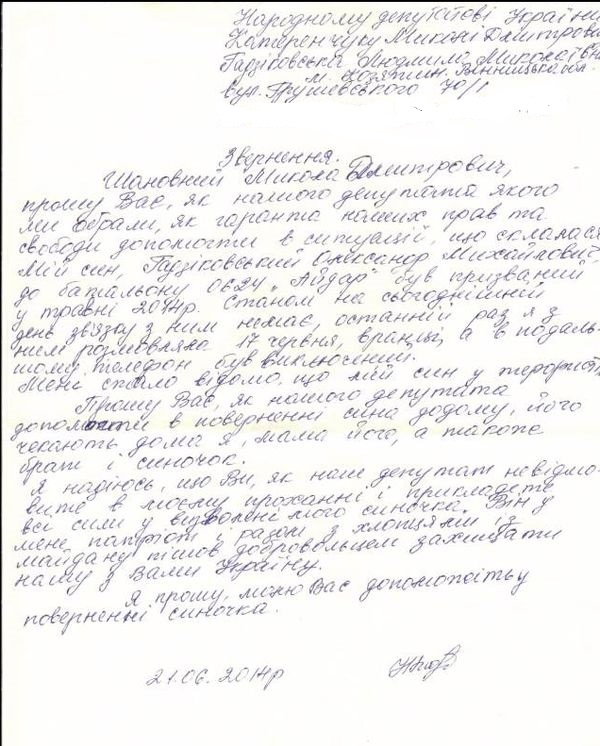 Народному депутатові України
Катеренчуку Миколі Дмитрови
Гадзіковська Людмила Миколаївна
м. Козятин. Вінницька обл.
вул. Грушевського 70/1
Звернення.
Шановний Микола Дмитрович,
прошу Вас, як нашого депутата якого
ми обрали, як гаранта наших прав та
свободи допомогти в ситуації, що склалася
Мій син, Гадзіковський Олександр Михайлович,
до батальону ОЄДУ „Айдар" був призваний
у травні 2014р. Станом на сьогоднішній
день зв'язку з ним немає, останній раз я з
ним розмовляла 17 червня, вранці, а в подаль-
шому телефон був виключений.
Мені стало відомо, що мій син у терористі
Прошу Вас, як нашого депутата
допомогти в поверненні сина додому, його
чекають дома я, мама його, а також
брат і синочок.
Я надіюсь, що Ви, як наш депутат невідмо-
вите в моєму проханні і прикладете
всі сили у визволені мого синочка. Він у
мене патріот і разом з хлопцями із
майдану пішов добровольцем захищати
нашу з Вами Україну.
Я прошу, молю Вас допоможіть у
поверненні синочка.
21.06.2014р